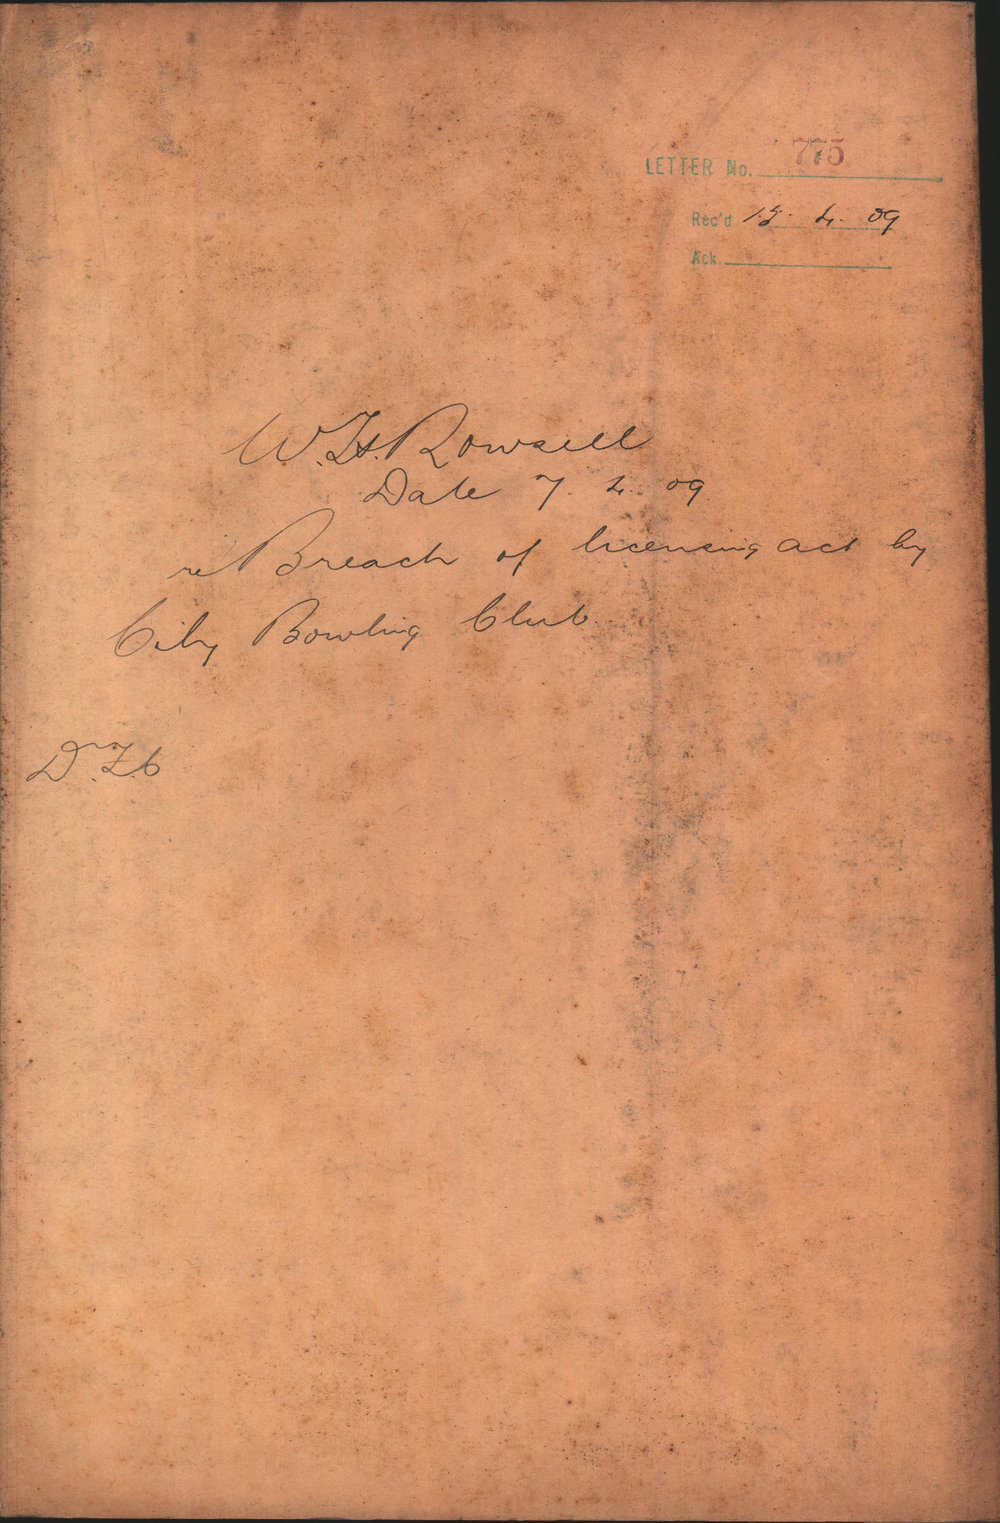 LETTER No. 775
Rec'd 4. 09
Ack
W. H. Rowsell
Date 7. 4. 09.
re Breach of licensing act by
City Bowling Club.